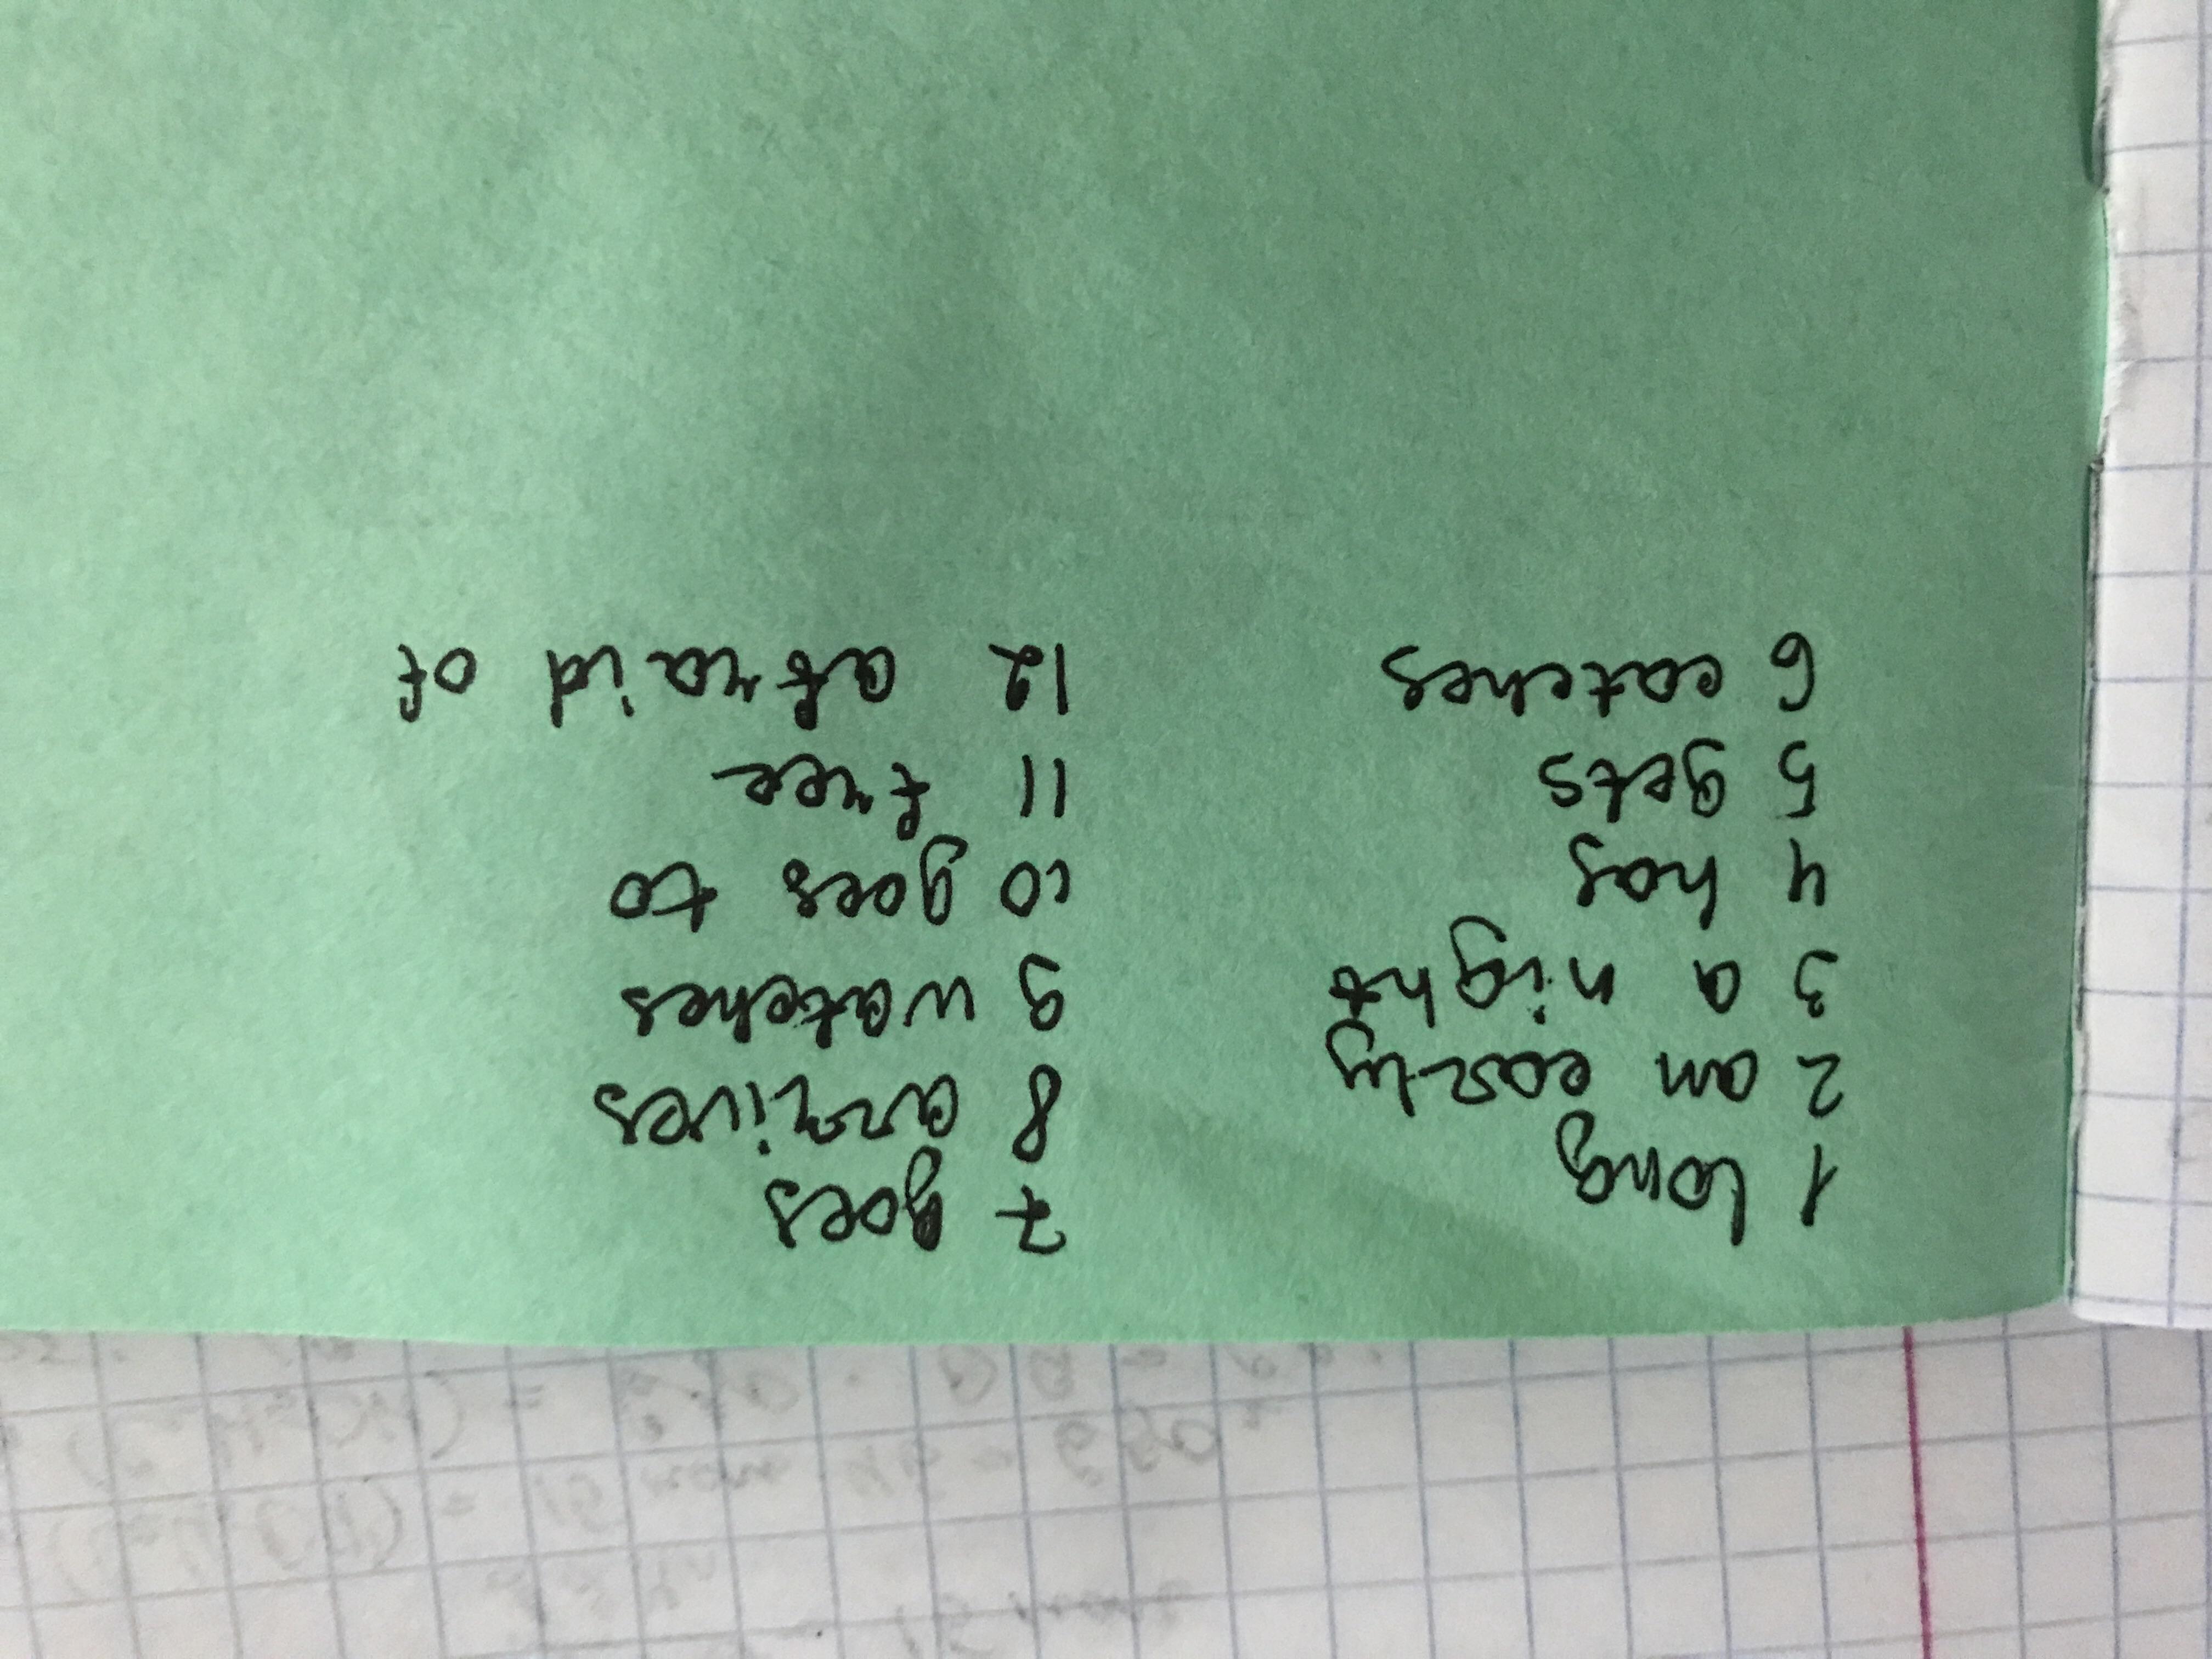 1 long
2 an early
3 a night
4 has
5 gets
6 catches
7 goes
8 arrives
9 watches
10 goes to
11 free
12 afraid of